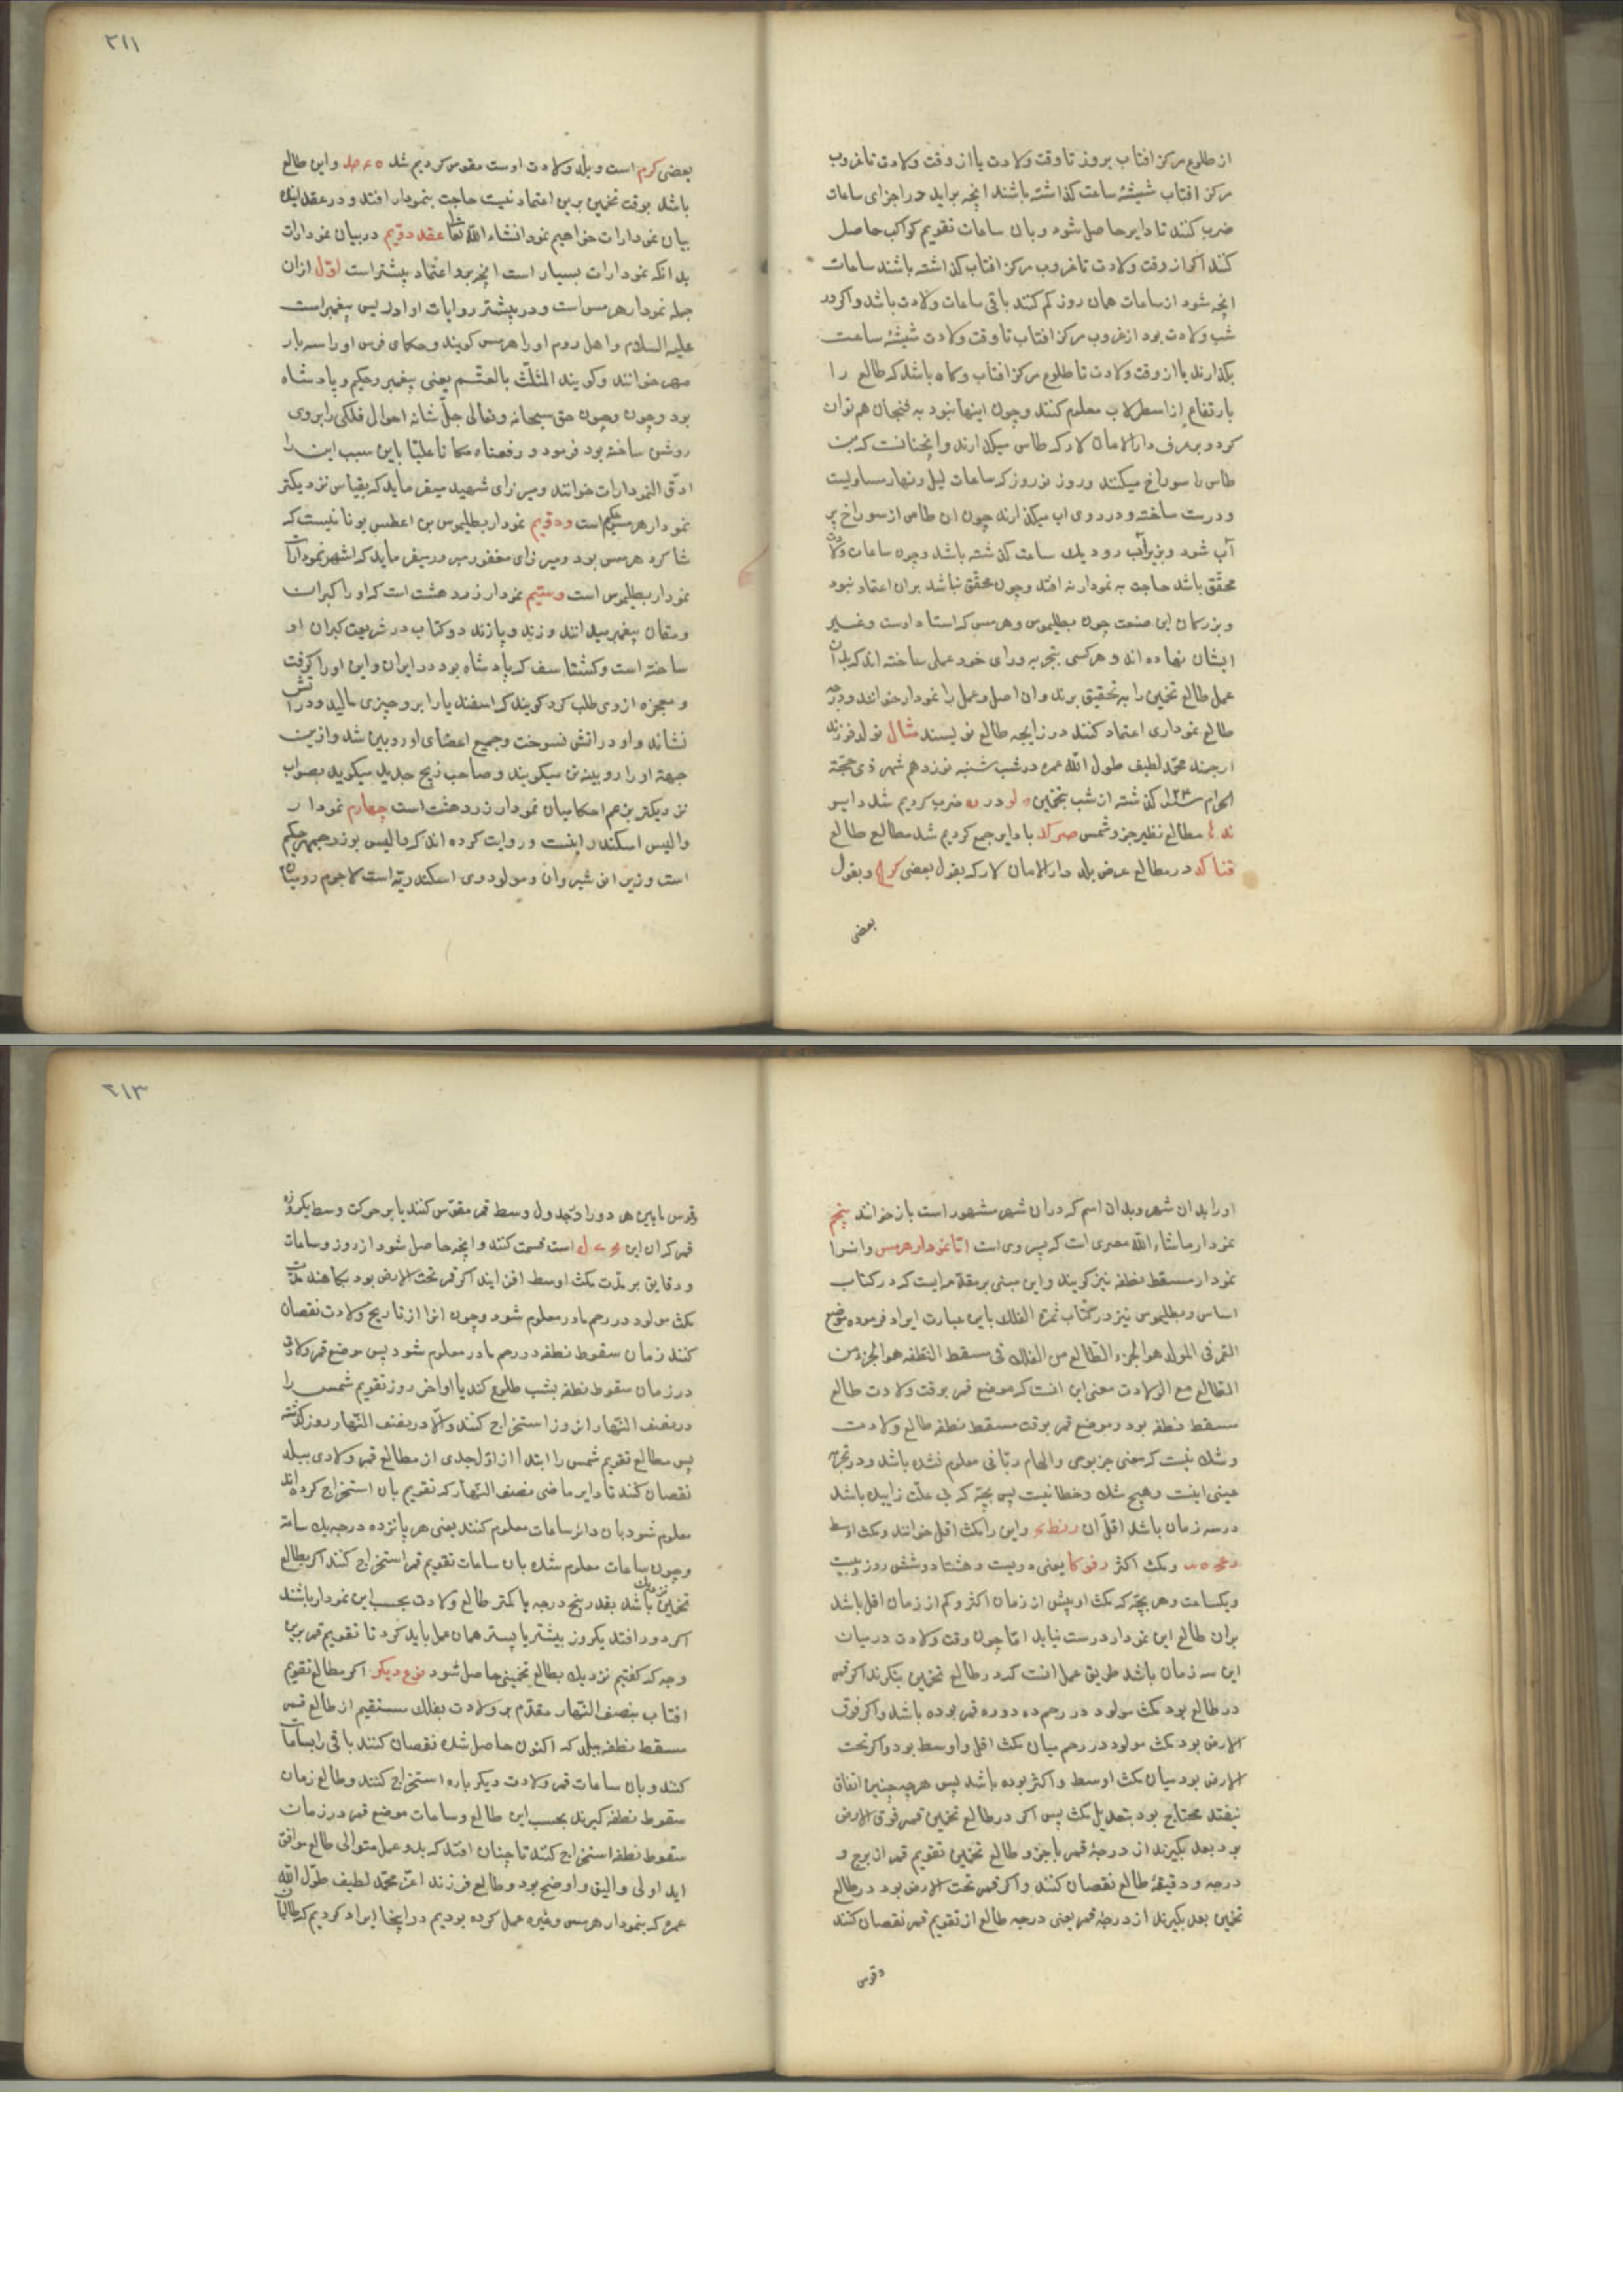 از طلوع مرکز افتاب بروز تا وقت ولادت یا از وقت ولادت تا غروب
مرکز افتاب شیشهٔ ساعت کذاشته باشند انچه براید در اجزای ساعات
ضرب کنند تا دایر حاصل شود و بان ساعات تقویم کواکب حاصل
کنند اکر از وقت ولادت تا غروب مرکز افتاب کذاشته باشند ساعات
انچه شود از ساعات همان روز کم کنند باقی ساعات ولادت باشد و اکر در
شب ولادت بود از غروب مرکز افتاب تا وقت ولادت شیشهٔ ساعت
بکذارند یا از وقت ولادت تا طلوع مرکز افتاب و کاه باشد که طالع را
بارتفاع از اسطرلاب معلوم کنند و چون اینها نبود به فنجان هم توان
کرد و بعرف دار الامان لار که طاس میکذارند و انچنانست که بن
طاس را سوراخ میکنند و روز نوروز که ساعات لیل و نهار مساویست
و درست ساخته و در روی اب میکذارند چون ان طاس از سوراخ پر
آب شود و بزیر آب رود یک ساعت کذشته باشد و چون ساعات ولادت
محقّق باشد حاجت به نمودار نه افتد و چون محقّق نباشد بران اعتماد نبود
و بزرکان این صنعت چون بطلیموس و هرمس که استاد اوست و غیر
ایشان نهاده اند و هر کسی بتجربه و رای خود عملی ساخته اند که بدان
عمل طالع تخمین را به تحقیق برند و ان اصل و عمل را نمودار خوانند و درجه
طالع نموداری اعتماد کنند در زایجه طالع نویسند مثال تولد فرزند
ارجمند محمّد لطیف طول اللّه عمره در شب شنبه نوزدهم شهر ذی حجّة
الحرام کذشته از شب بتخمین لو در ضرب کردیم شد دایر
ند مطالع نظیر جزو شمس صر کد با دایر جمع کردیم شد مطالع طالع
قنا کد در مطالع عرض بلد دار الامان لار که بقول بعضی و بقول
بعضی
٢١١
بعضی کرم است و بلد ولادت اوست مقوس کردیم شد و این طالع
باشد بوقت تخمین برین اعتماد نیست حاجت بنمودار افتد و در عقد اینک
بیان نمودارات خواهیم نمود انشاء اللّه تعا عقد دویم در بیان نمودارات
بدانکه نمودارات بسیار است انچه برو اعتماد بیشتر است اوّل ازان
جمله نمودار هرمس است و در بیشتر روایات او ادریس پیغمبر است
علیه السلام و اهل روم او را هرمس کویند و حکمای فرس او را سه بار
خوانند و کویند المثلّث یعنی پیغمبر و حکیم و پادشاه
بود و چون حق سبحانه و تعالی جلّ شانه احوال فلکی را بر وی
روشن ساخته بود فرمود و رفعناه مکانا علیّا باین سبب این را
ادقّ النمودارات خوانند و میرزای شهید میفرماید که بقیاس نزدیکتر
نمودار هرمس حکیم است ودویم نمودار بطلیموس بن اعطس یونانیست که
شاکرد هرمس بود و میرزای مغفور مبرور میفرماید که اشهر نمودارات
نمودار بطلیموس است وسیّم نمودار زردهشت است که او را کبران
و مغان پیغمبر میدانند و زند و پازند دو کتاب در شریعت کبران او
ساخته است و کشتاسف که پادشاه بود در ایران و این او را کرفت
و معجزه از وی طلب کرد کویند که اسفندیار را بر و چیزی مالید و در اتش
نشاند و او در اتش نسوخت و جمیع اعضای او رویین شد و ازین
جهة او را رویینه تن میکویند و صاحب زیج جدید میکوید بصواب
نزدیکترین هم احکامیان نمودار زردهشت است چهارم نمودار
والیس اسکندرانیست و روایت کرده اند که والیس بوزرجمهر حکیم
است وزیر انوشیروان و مولود وی اسکندریّه است لاجرم رومیان
او را بدان شهر و بدان اسم که دران شهر مشهور است باز خوانند پنجم
نمودار ماشاء اللّه مصری است که پیرو وی است امّا نمودار هرمس و انرا
نمودار مسقط نطفه نیز کویند و این مبنی بر مقدّمه ایست که در کتاب
اساس و بطلیموس نیز در کتاب ثمرة الفلک باین عبارت ایراد فرموده موضع
القمر فی المولد هو الجزء الطّالع من الفلک فی مسقط النّطفه هو الجزء من
الطّالع مع الولادت معنی این انست که موضع قمر بوقت ولادت طالع
مسقط نطفه بود و موضع قمر بوقت مسقط نطفه طالع ولادت
و شک نیست که معنی جز بوحی و الهام ربّانی معلوم نشده باشد و در تجربه
عینی اینست و هیچ شک و خطا نیست پس بچّه که بی علّت زاییده باشد
در سه زمان باشد اقلّ ان و این را مکث اقل خوانند و مکث اوسط
و مکث اکثر رفو کا یعنی دویست و هشتاد و شش روز و بیست
و یکساعت و هر بچّه که مکث او بیش از زمان اکثر و کم از زمان اقل باشد
بران طالع این نمودار درست نیاید امّا چون وقت ولادت در میان
این سه زمان باشد طریق عمل انست که در طالع تخمین بنکرند اکر قمر
در طالع بود مکث مولود در رحم ده دوره قمر بوده باشد و اکر فوق
الارض بود مکث مولود در رحم میان مکث اقل و اوسط بود و اکر تحت
الارض بود میان مکث اوسط و اکثر بوده باشد پس هرچه چنین اتفاق
نیفتد محتاج بود بتعدیل مکث پس اکر در طالع تخمین قمر فوق الارض
بود بعد بکیرند از درجهٔ قمر با جزو طالع تخمین تقویم قمر از برج و
درجه و دقیقهٔ طالع نقصان کنند و اکر قمر تحت الارض بود در طالع
تخمین بعد بکیرند از درجهٔ قمر یعنی درجه طالع از تقویم قمر نقصان کنند
و قوس
٢١٣
وقوس مابین هر دو را در جدول وسط قمر مقوّس کنند یا بر حرکت وسط یکروزه
قمر که ان این است قسمت کنند و انچه حاصل شود از روز و ساعات
و دقایق بر مدّت مکث اوسط افزایند اکر قمر تحت الارض بود بکاهند مدّت
مکث مولود در رحم مادر معلوم شود و چون انرا از تاریخ ولادت نقصان
کنند زمان سقوط نطفه در رحم مادر معلوم شود پس موضع قمر ولادتی
در زمان سقوط نطفه بشب طلوع کند یا اواخر روز تقویم شمس را
در نصف النّهار انروز استخراج کنند و الّا در نصف النّهار روز کذشته
پس مطالع تقویم شمس را ابتدا از اوّل جدی از مطالع قمر ولادی ببلد
نقصان کنند تا دایر ماضی نصف النّهار که تقویم بان استخراج کرده اند
معلوم شود بان دائر ساعات معلوم کنند یعنی هر پانزده درجه یک ساعت
و چون ساعات معلوم شد بان ساعات تقویم قمر استخراج کنند اکر بطالع
تخمین نزدیک باشد بقدر پنج درجه یا کمتر طالع ولادت بحسب این نمودار باشند
اکر دور افتد یکروز بیشتر یا پستر همان عمل باید کرد تا تقویم قمر برین
وجه که کفتیم نزدیک بطالع تخمینی حاصل شود نوع دیکر اکر مطالع تقویم
افتاب بنصف النّهار مقدّم بر ولادت بفلک مستقیم از طالع قمر
مسقط نطفه ببلد که اکنون حاصل شده نقصان کنند باقی را بساعات
کنند و بان ساعات قمر ولادت دیکر باره استخراج کنند و طالع زمان
سقوط نطفه کیرند بحسب این طالع و ساعات موضع قمر در زمان
سقوط نطفه استخراج کنند تا چنان افتد که بدو عمل متوالی طالع موافق
اید اولی و الیق و اوضح بود و طالع فرزند اعزّ محمّد لطیف طوّل اللّه
عمره که بنمودار هرمس وغیره عمل کرده بودیم در اینجا ایراد کردیم که طالبان